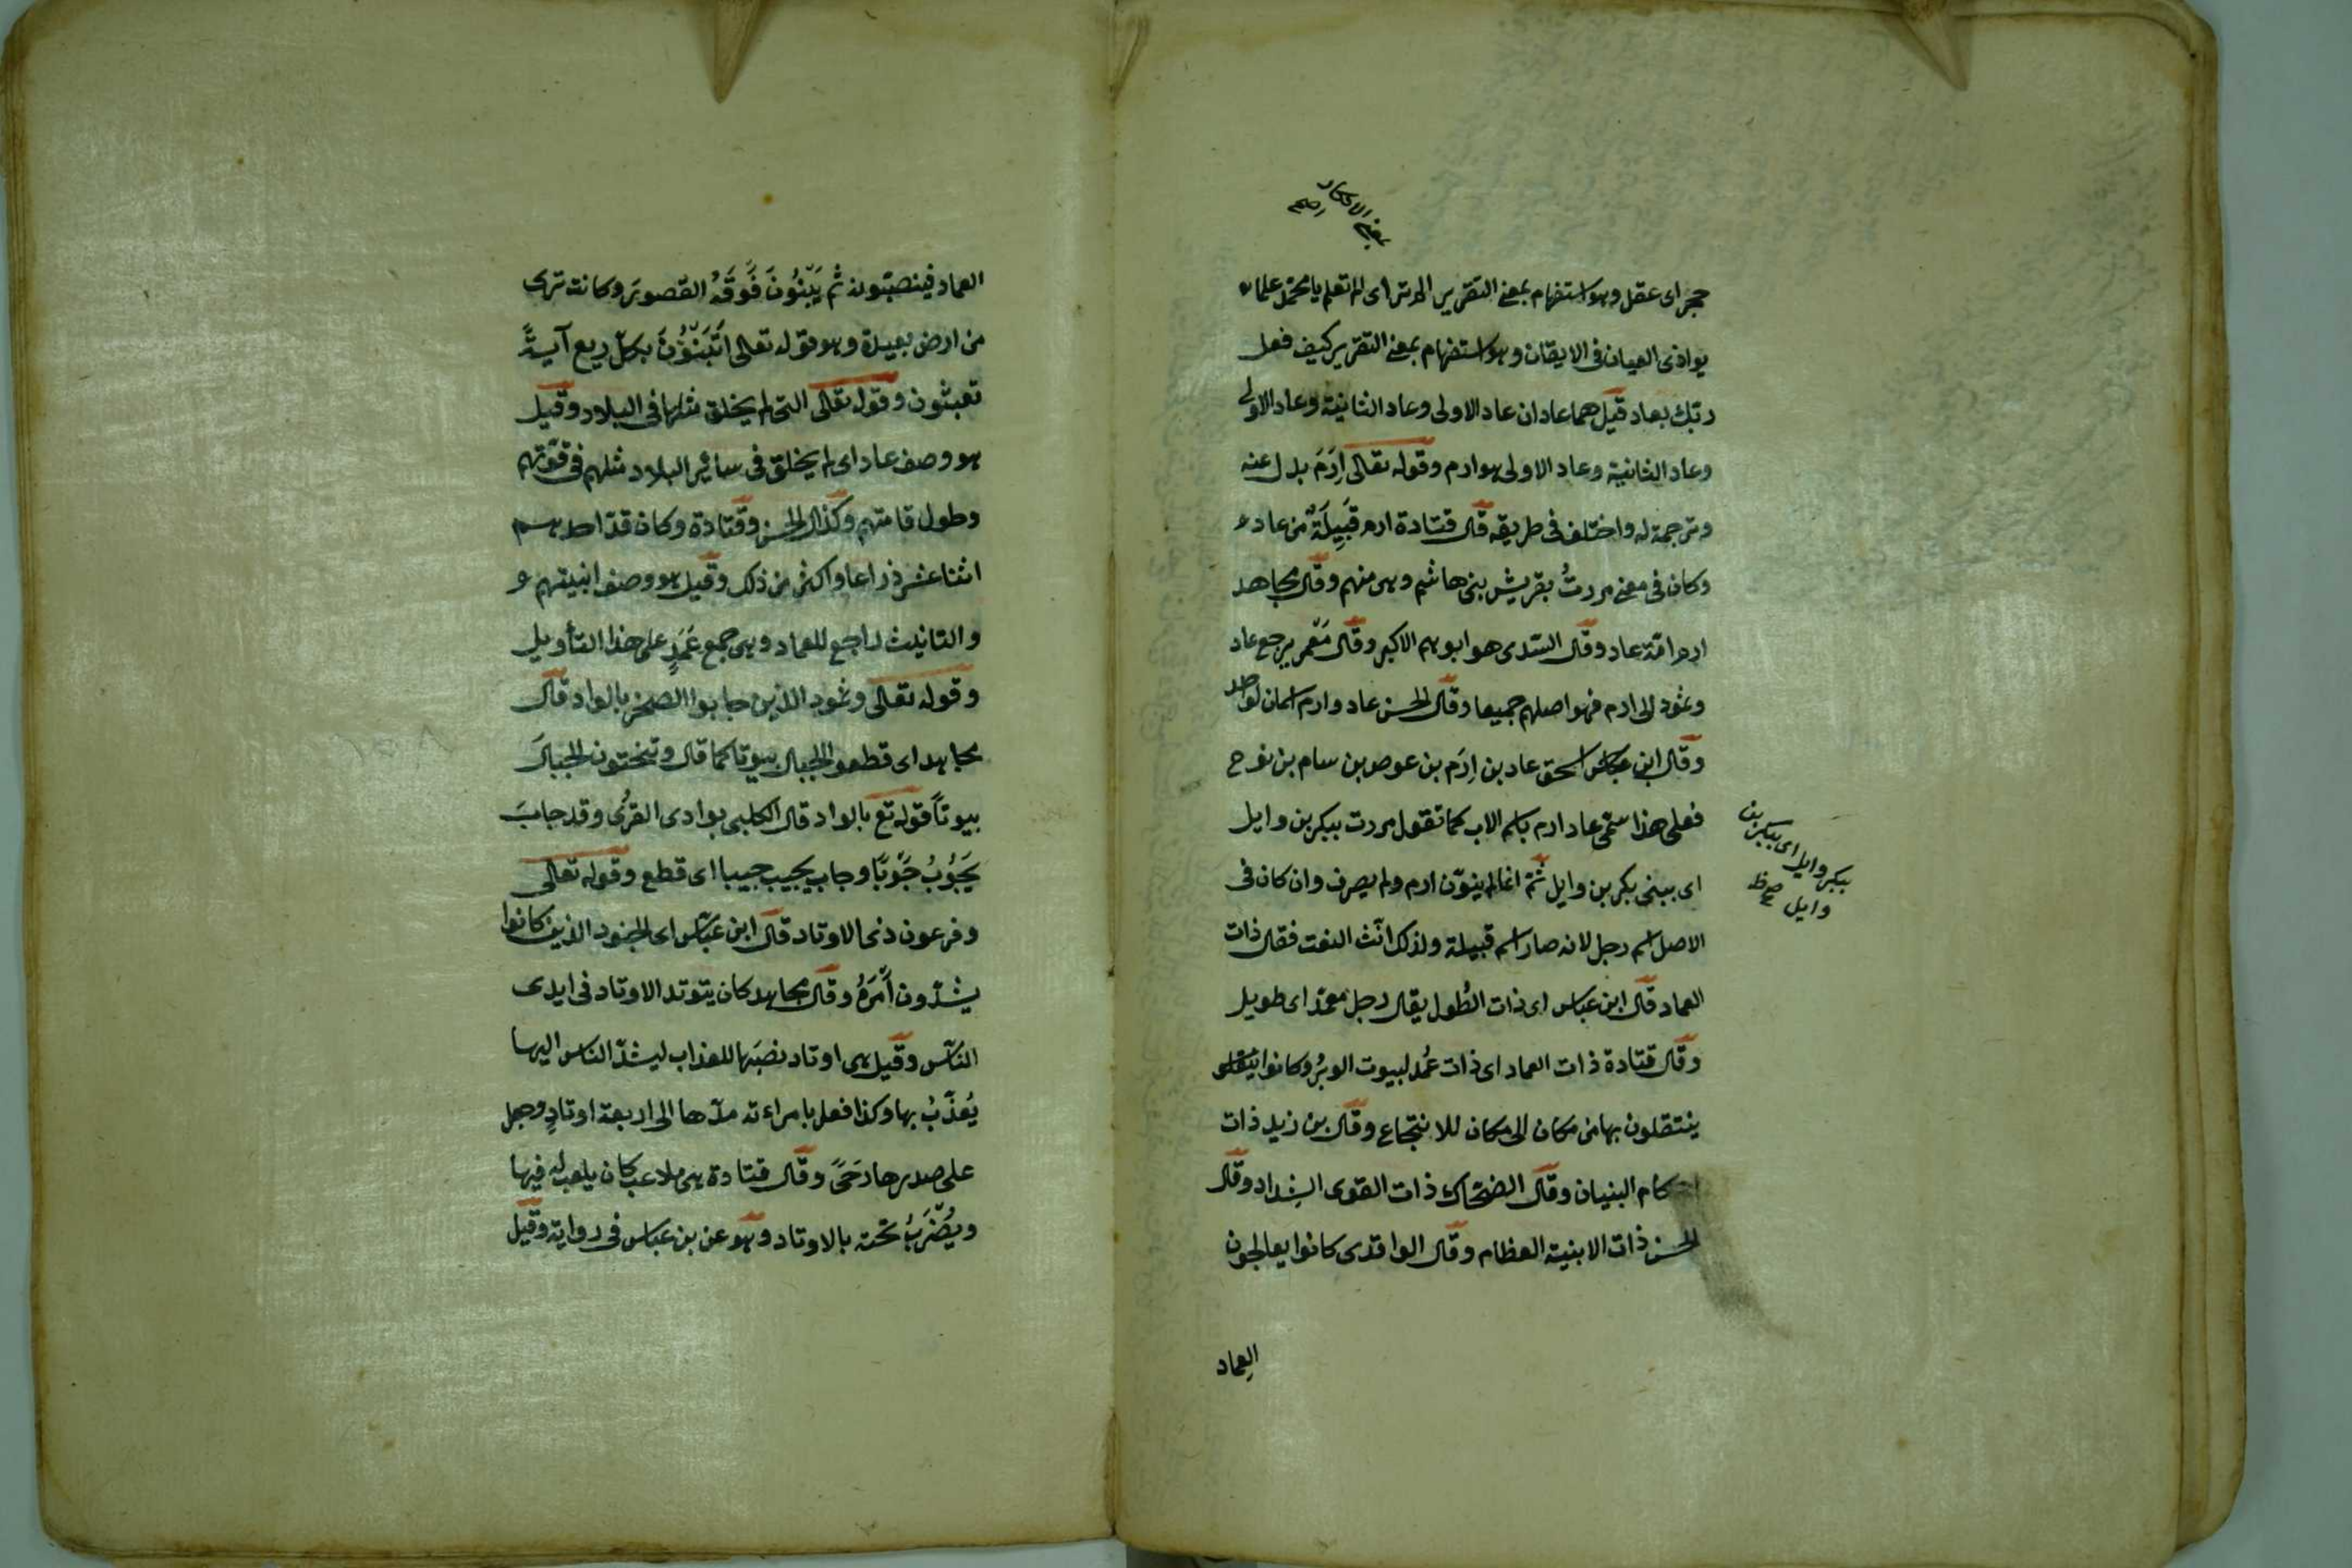 بمعنى الانكار
اصح
حجر اى عقل وهو استفهام بمعنى التقرير الم تر اى الم تعلم يا محمّد علما
يوازى العيان فى الايقان وهو استفهام بمعنى التقرير كيف فعل
ربّك بعاد قيل هما عادان عاد الاولى وعاد الثانية وعاد الاولى
وعاد الثانية وعاد الاولى هو ارم وقوله تعالى اِرَمَ بدل عنه
وترجمة له واختلف فى طريقه قال قتادة ارم قَبِيلَةٌ من عاد
وكان فى معنى مررتُ بقريش بنى هاشم وهى منهم وقال مجاهد
ارم امّة عاد وقال السّدى هو ابوهم الاكبر وقال مَعْمر يرجع عاد
وثمود الى ارم فهو اصلهم جميعا وقال الحسن عاد وارم اسمان لواحد
وقال ابن عباس اسحق عاد بن اِرَم بن عوص بن سام بن نوح
فعلى هذا سمّى عاد ارم باسم الاب كما تقول مررت ببكر بن وايل
ببكر وايل اى ببكر بن
وايل صح ظ
اى ببنى بكر بن وايل ثمّ انما لم ينوّن ارم ولم يصرف وان كان فى
الاصل اسم رجل لانه صار اسم قبيلة ولذلك انّث النعت فقال ذات
العماد قال ابن عباس اى ذات الطُول يقال رجل معمّد اى طويل
وقال قتادة ذات العماد اى ذات عُمد لبيوت الوبرُ وكانوا
ينتقلون بها من مكان الى مكان للانتجاع وقال بن زيد ذات
احكام البنيان وقال الضحّاك ذات القوى الشِداد وقال
الحسن ذات الابنية العظام وقال الواقدى كانوا يعالجون
العِماد
العماد فينصبّونه ثُم يَبْنُونَ فَوقَهُ القصورَ وكانت ترى
من ارض بعيدة وهو قوله تعالى اَتَبنُونَ بكلّ ريع آيةً
تعبثون وقوله تعالى التى لم يخلق مثلها فى البلاد وقيل
هو وصف عاد اى لم يخلق فى سائر البلاد مثلهم فى قوّتهم
وطول قامتهم وكذا قال الحسن وقتادة وكان قدّ احدهم
اثنا عشر ذراعا واكثر من ذلك وقيل هو وصف ابنيتهم
والتانيث راجع للعماد وهى جمع عَمَدٍ على هذا التأويل
وقوله تعالى وثمود الذين جابوا الصخر بالواد قال
مجاهد اى قطعوا الجبال بيوتا كما قال وتنحتون الجبالَ
بيوتاً قوله تع بالواد قال الكلبى بوادى القرُى وقد جابَ
يَجُوبُ جَوْبًا وجاب يجيب جيبا اى قطع وقوله تعالى
وفرعون ذى الاوتاد قال ابن عبّاس اى الجنود الذين كانوا
يشدّون اَمْرَهُ وقال مجاهد كان يتوتد الاوتاد فى ايدى
النّاس وقيل هى اوتاد نصَبَها للعذاب ليشدّ الناس اليها
يُعَذّبُ بها وكذا فعل بامراءته مدّها الى اربعة اوتادٍ وجعل
على صدرها رَحًى وقال قتادة هى ملاعب كان يلعب له فيها
ويُضْرَبُ تحته بالاوتاد وهو عن بن عباس فى رواية وقيل